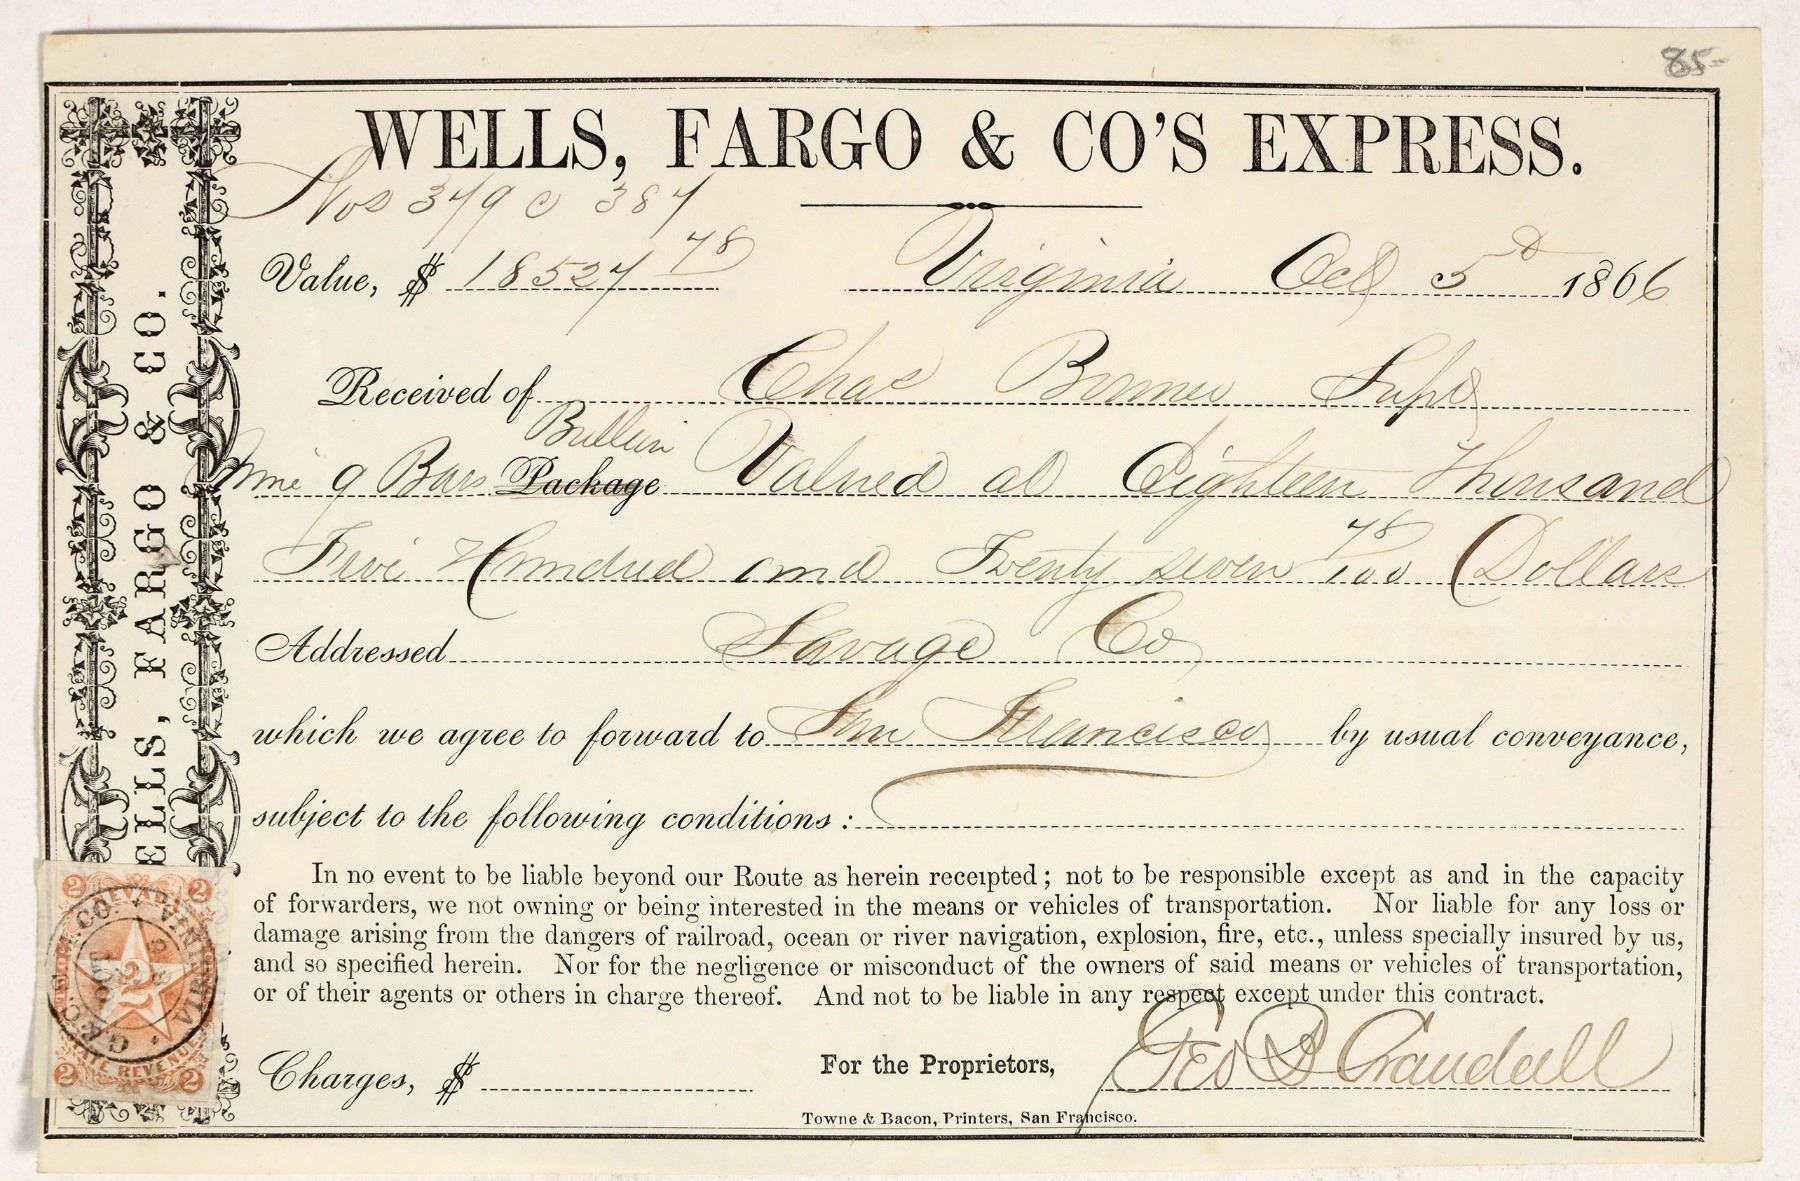 85-
WELLS, FARGO & CO'S EXPRESS.
Nos 379 @ 387
Value, $ 18527 78 Virginia Oct 5th 1866
Received of Chas Bonner Supt
Bullion
Nine 9 Bars Package Valued at Eighteen Thousand
Five Hundred and Twenty seven 78/100 Dollars
Addressed Savage Co
which we agree to forward to San Francisco by usual conveyance,
subject to the following conditions :
In no event to be liable beyond our Route as herein receipted ; not to be responsible except as and in the capacity
of forwarders, we not owning or being interested in the means or vehicles of transportation. Nor liable for any loss or
damage arising from the dangers of railroad, ocean or river navigation, explosion, fire, etc., unless specially insured by us,
and so specified herein. Nor for the negligence or misconduct of the owners of said means or vehicles of transportation,
or of their agents or others in charge thereof. And not to be liable in any respect except under this contract.
Charges, $ For the Proprietors, Geo B Crandall
Towne & Bacon, Printers, San Francisco.
ELLS, FARGO & CO.
2 NEVADA 2
CO. VIRGINIA
OCT
2
2 STATE REVENUE 2